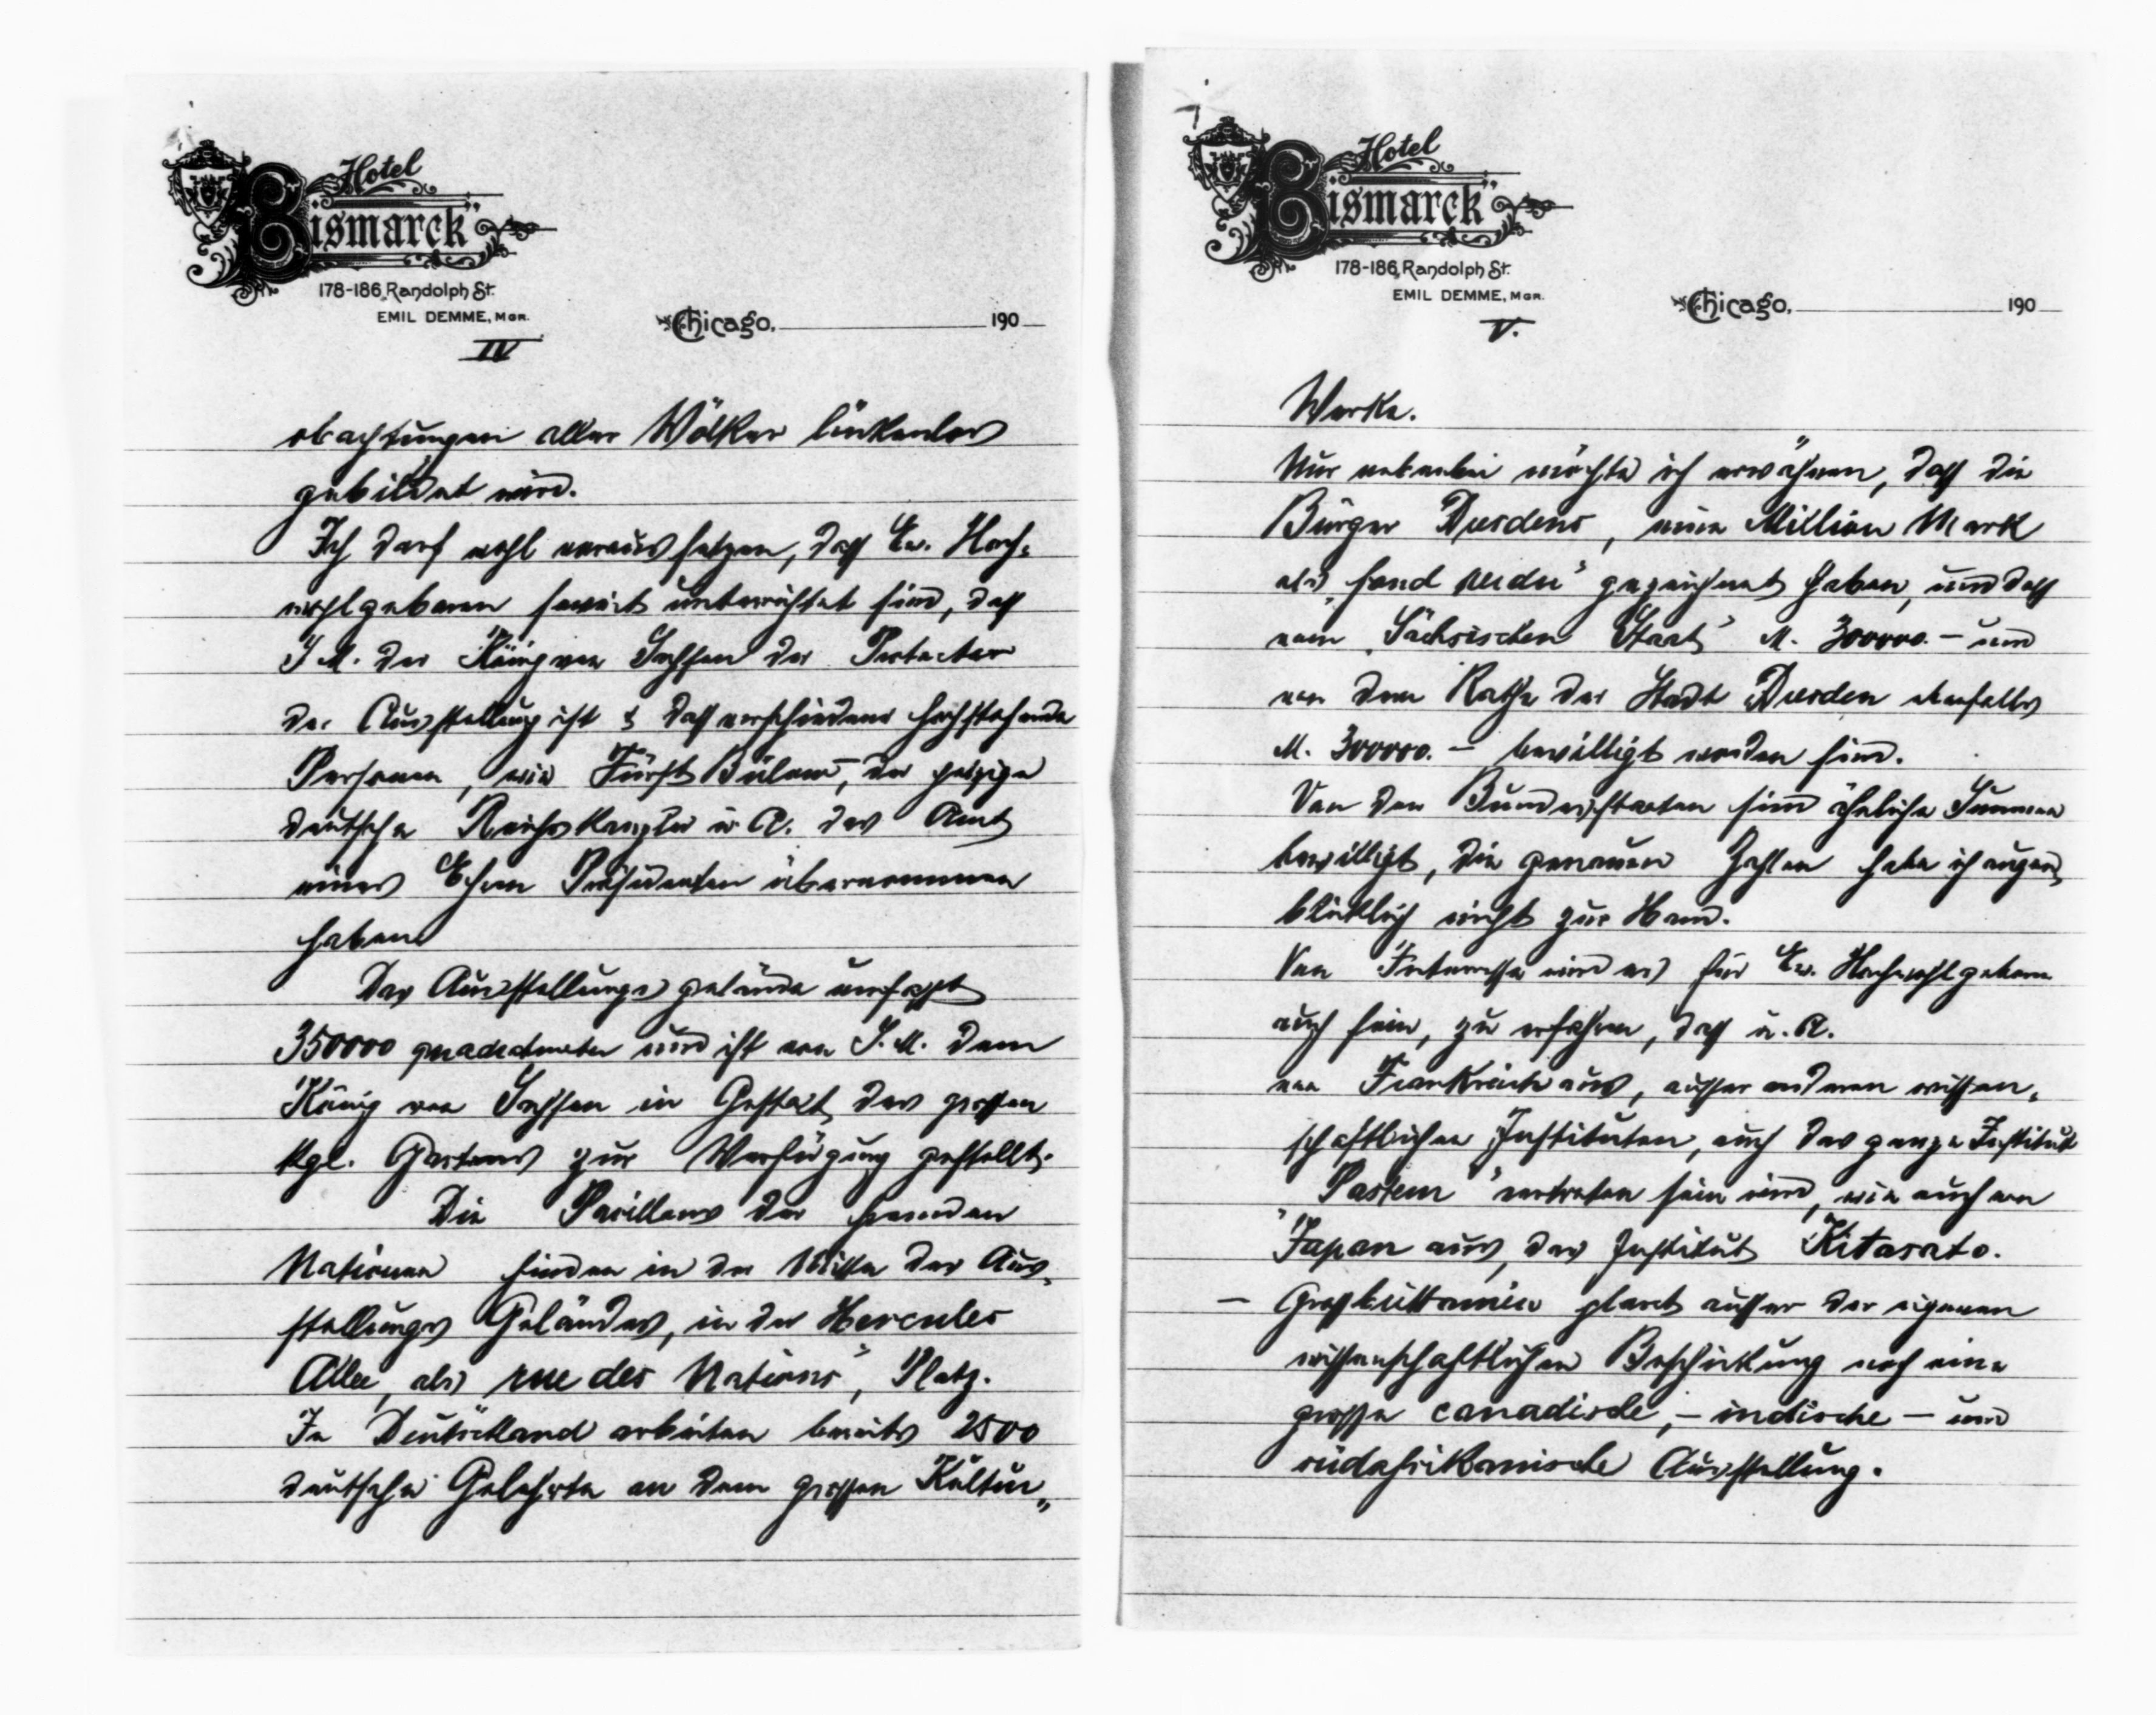 Hotel
"Bismarck"
178-186 Randolph St.
EMIL DEMME, MGR.
Chicago, 190
IV
obachtungen aller Völker lückenlos
gebildet wird.
Ich darf wohl voraussetzen, dass Ew. Hoch-
wohlgeboren soweit unterrichtet sind, dass
S. M. der König von Sachsen der Protector
der Ausstellung ist & dass verschiedene hochstehende
Personen, wie Fürst Bülow, der jetzige
deutsche Reichskanzler u. A. das Amt
eines Ehren Präsidenten übernommen
haben.
Das Ausstellungsgelände umfasst
350000 quadratmeter und ist von S. M. dem
König von Sachsen in Gestalt des grossen
Kgl. Gartens zur Verfügung gestellt.
Die Pavillons der fremden
Nationen finden in der Mitte des Aus-
stellungs Geländes, in der Hercules
Allee, als "rue des Nations", Platz.
In Deutschland arbeiten bereits 2500
deutsche Gelehrte an dem grossen Kultur-
Hotel
"Bismarck"
178-186 Randolph St.
EMIL DEMME, MGR.
Chicago, 190
V.
Werke.
Nur nebenbei möchte ich erwähnen, dass die
Bürger Dresdens, eine Million Mark
als "fond perdu" gezeichnet haben, und dass
vom Sächsischen Staat M. 300000.- und
von dem Rathe der Stadt Dresden ebenfalls
M. 300000.- bewilligt worden sind.
Von den Bundesstaaten sind ähnliche Summen
bewilligt, die genauen Zahlen habe ich augen-
blicklich nicht zur Hand.
Von Interesse wird es für Ew. Hochwohlgeboren
auch sein, zu erfahren, dass u. A.
von Frankreich aus, ausser anderen wissen-
schaftlichen Instituten, auch das ganze Institut
"Pasteur" vertreten sein wird, wie auch von
Japan aus, das Institut Kitasato.
- Grossbrittanien plant ausser der eigenen
wissenschaftlichen Beschickung noch eine
grosse canadische, - indische - und
südafrikanische Ausstellung.